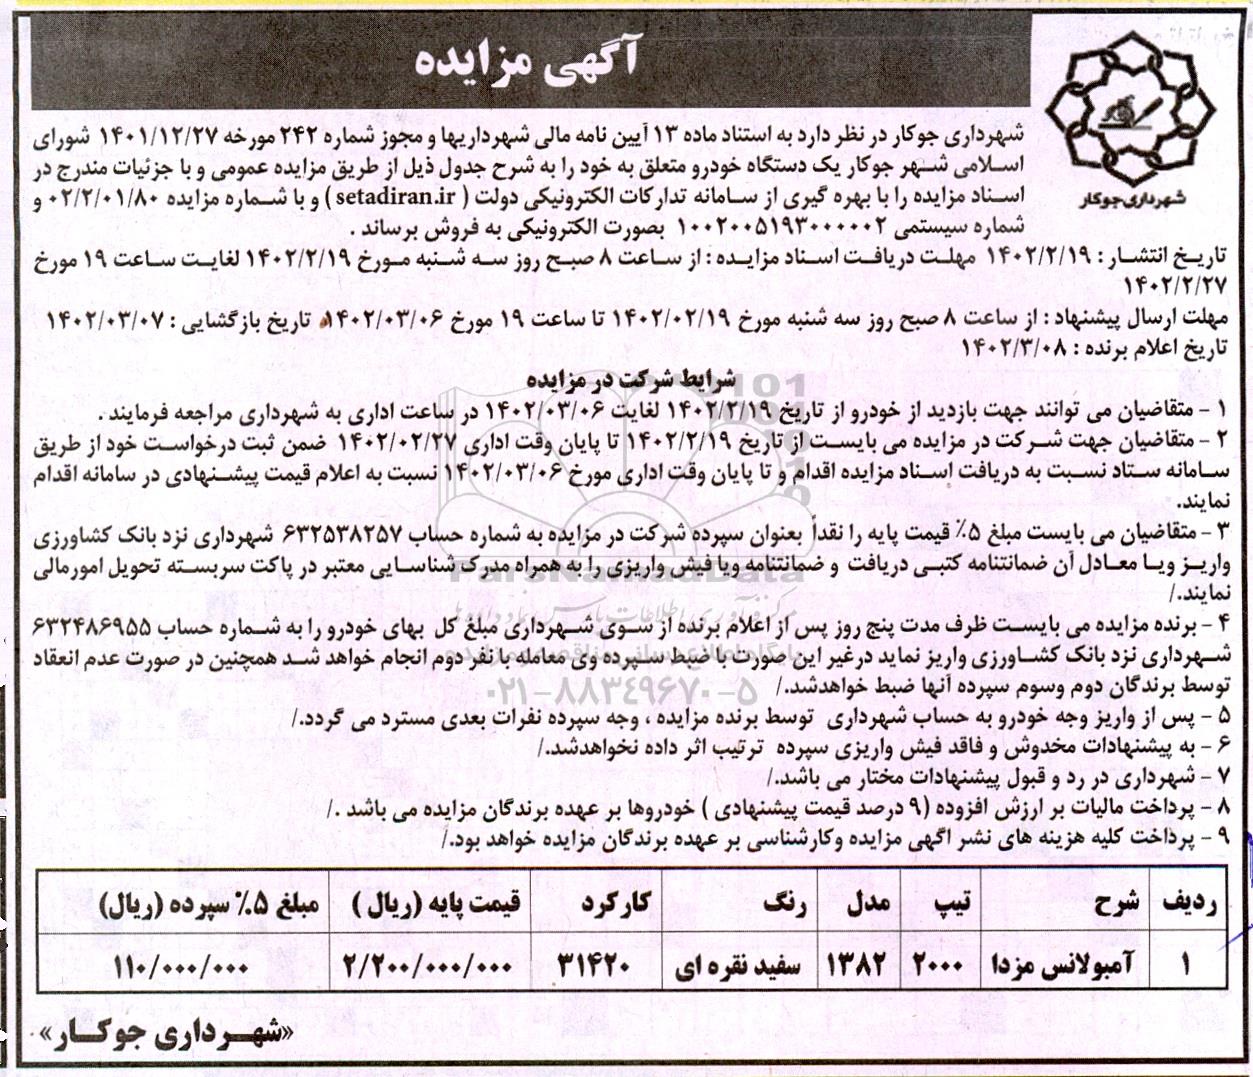 آگهی مزایده
شهرداری جوکار
شهرداری جوکار در نظر دارد به استناد ماده ۱۳ آیین نامه مالی شهرداریها و مجوز شماره ۲۴۲ مورخه ۱۴۰۱/۱۲/۲۷ شورای
اسلامی شهر جوکار یک دستگاه خودرو متعلق به خود را به شرح جدول ذیل از طریق مزایده عمومی و با جزئیات مندرج در
اسناد مزایده را با بهره گیری از سامانه تدارکات الکترونیکی دولت ( setadiran.ir ) و با شماره مزایده ۰۲/۲/۰۱/۸۰ و
شماره سیستمی ۱۰۰۲۰۰۵۱۹۳۰۰۰۰۰۲ بصورت الکترونیکی به فروش برساند .
تاریخ انتشار : ۱۴۰۲/۲/۱۹ مهلت دریافت اسناد مزایده : از ساعت ۸ صبح روز سه شنبه مورخ ۱۴۰۲/۲/۱۹ لغایت ساعت ۱۹ مورخ
۱۴۰۲/۲/۲۷
مهلت ارسال پیشنهاد : از ساعت ۸ صبح روز سه شنبه مورخ ۱۴۰۲/۰۲/۱۹ تا ساعت ۱۹ مورخ ۱۴۰۲/۰۳/۰۶ تاریخ بازگشایی : ۱۴۰۲/۰۳/۰۷
تاریخ اعلام برنده : ۱۴۰۲/۳/۰۸
شرایط شرکت در مزایده
۱ - متقاضیان می توانند جهت بازدید از خودرو از تاریخ ۱۴۰۲/۲/۱۹ لغایت ۱۴۰۲/۰۳/۰۶ در ساعت اداری به شهرداری مراجعه فرمایند .
۲ - متقاضیان جهت شرکت در مزایده می بایست از تاریخ ۱۴۰۲/۲/۱۹ تا پایان وقت اداری ۱۴۰۲/۰۲/۲۷ ضمن ثبت درخواست خود از طریق
سامانه ستاد نسبت به دریافت اسناد مزایده اقدام و تا پایان وقت اداری مورخ ۱۴۰۲/۰۳/۰۶ نسبت به اعلام قیمت پیشنهادی در سامانه اقدام
نمایند.
۳ - متقاضیان می بایست مبلغ ۵٪ قیمت پایه را نقداً بعنوان سپرده شرکت در مزایده به شماره حساب ۶۳۲۵۳۸۲۵۷ شهرداری نزد بانک کشاورزی
واریز ویا معادل آن ضمانتنامه کتبی دریافت و ضمانتنامه ویا فیش واریزی را به همراه مدرک شناسایی معتبر در پاکت سربسته تحویل امورمالی
نمایند./
۴ - برنده مزایده می بایست ظرف مدت پنج روز پس از اعلام برنده از سوی شهرداری مبلغ کل بهای خودرو را به شماره حساب ۶۳۲۴۸۶۹۵۵
شهرداری نزد بانک کشاورزی واریز نماید درغیر این صورت با ضبط سپرده وی معامله با نفر دوم انجام خواهد شد همچنین در صورت عدم انعقاد
توسط برندگان دوم وسوم سپرده آنها ضبط خواهدشد./
۵ - پس از واریز وجه خودرو به حساب شهرداری توسط برنده مزایده ، وجه سپرده نفرات بعدی مسترد می گردد./
۶ - به پیشنهادات مخدوش و فاقد فیش واریزی سپرده ترتیب اثر داده نخواهدشد./
۷ - شهرداری در رد و قبول پیشنهادات مختار می باشد./
۸ - پرداخت مالیات بر ارزش افزوده (۹ درصد قیمت پیشنهادی ) خودروها بر عهده برندگان مزایده می باشد ./
۹ - پرداخت کلیه هزینه های نشر اگهی مزایده وکارشناسی بر عهده برندگان مزایده خواهد بود./
ParsNamadData
۰۲۱-۸۸۳۴۹۶۷۰-۵
ردیف شرح تیپ مدل رنگ کارکرد قیمت پایه (ریال ) مبلغ ۵٪ سپرده (ریال)
۱ آمبولانس مزدا ۲۰۰۰ ۱۳۸۲ سفید نقره ای ۳۱۴۲۰ ۲/۲۰۰/۰۰۰/۰۰۰ ۱۱۰/۰۰۰/۰۰۰
«شهرداری جوکار»